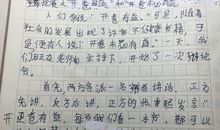 辩论赛之"开卷有益"和"开卷未必有益"
人们常说:"开卷有益",可是,随着
社会的发展,出现了许多不健康书籍,于
是便有人说:开卷未必有益。今天,我
们班在老师的主持下,开始了一次辩论
会。
首先,两方各派一名辩者讲话,正方
先讲,反方后讲。正方的张
开卷有益,每当我们看一本书,都可以